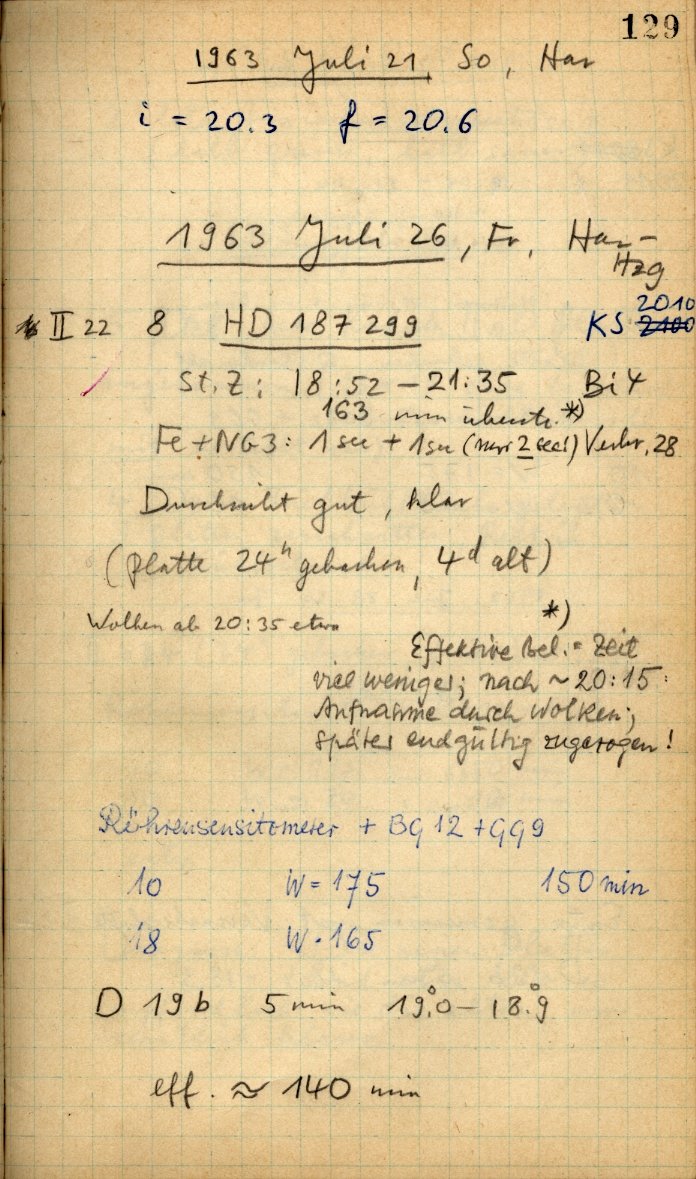 129
1963 Juli 21, So, Har
i = 20.3 f = 20.6
1963 Juli 26, Fr, Har-
Hzg
2010
II 22 8 HD 187 299 KS 2100
St. Z: 18:52 – 21:35 Bi 4
163 min *)
Fe + NG3: 1 sec + 1 sec (nur 2 sec!) Verbr. 28
Durchsicht gut, klar
(Platte 24h gebacken, 4d alt)
Wolken ab 20:35 etwa
*)
Effektive Bel. = Zeit
viel weniger; nach ~ 20:15:
Aufnahme durch Wolken;
später endgültig zugezogen!
Röhrensensitometer + BG 12 + GG9
10 W = 175 150 min
18 W = 165
D 19 b 5 min 19°.0 – 18°.9
eff. ≈ 140 min